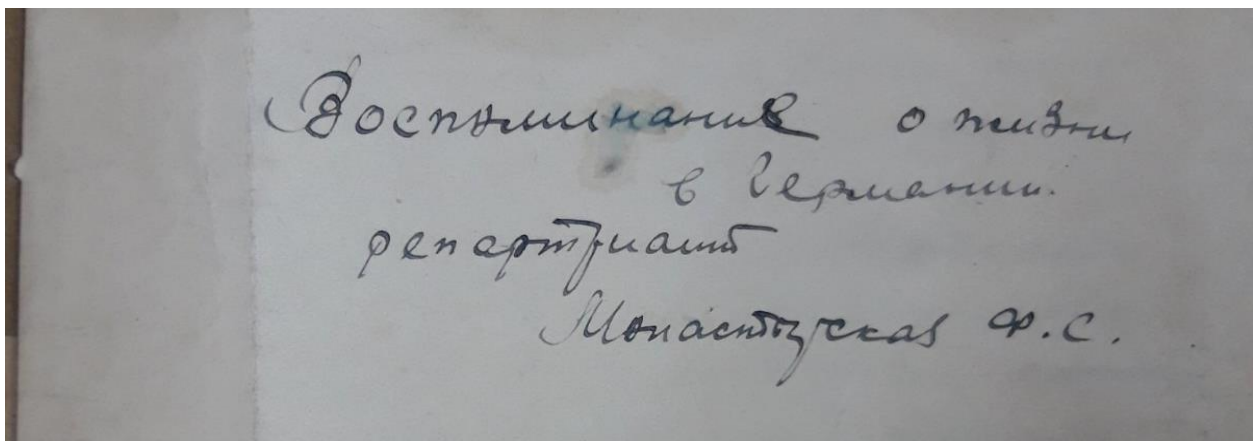 Воспоминание о жизни
в Германии.
репартриант
Монастырская Ф.С.